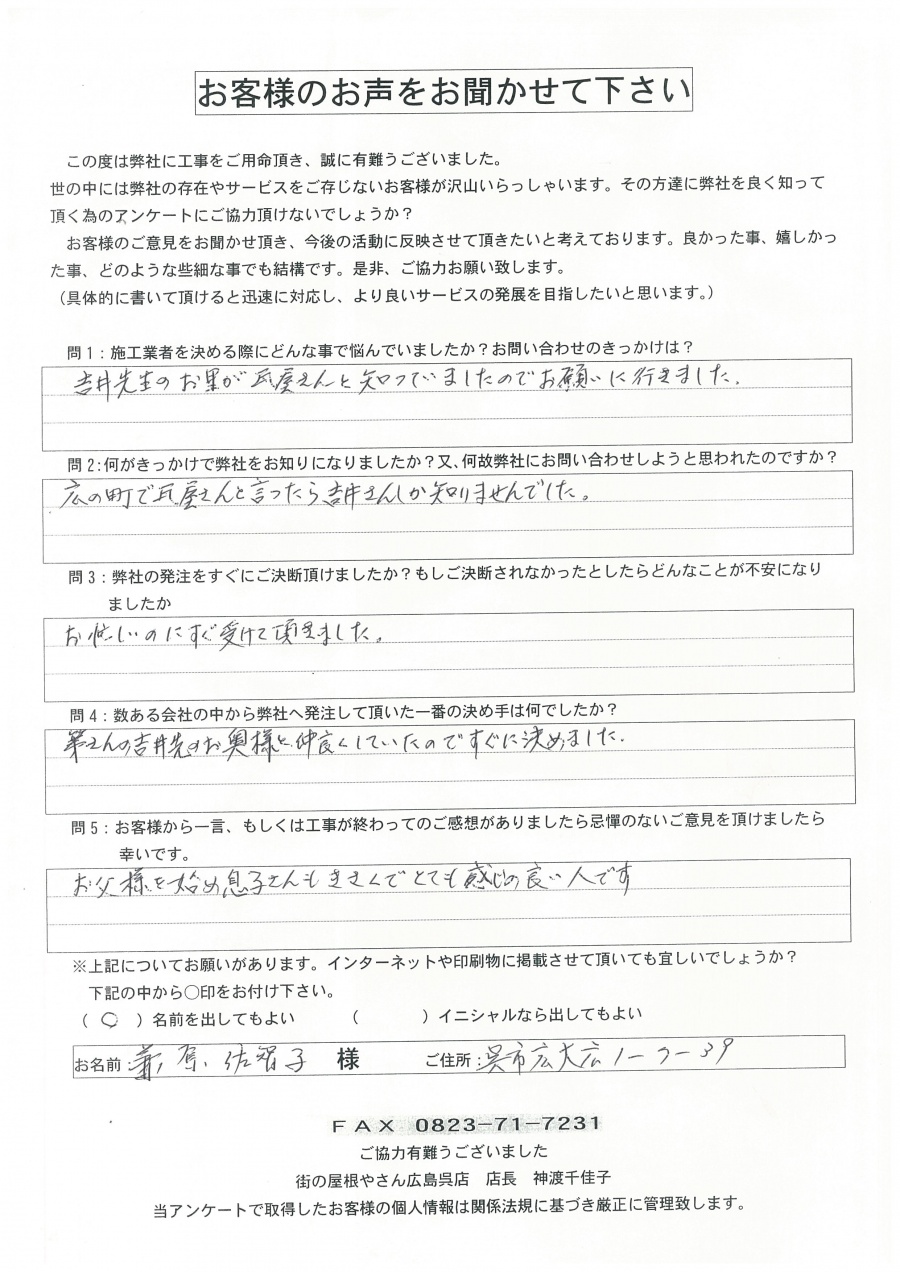 お客様のお声をお聞かせて下さい
この度は弊社に工事をご用命頂き、誠に有難うございました。
世の中には弊社の存在やサービスをご存じないお客様が沢山いらっしゃいます。その方達に弊社を良く知って
頂く為のアンケートにご協力頂けないでしょうか？
お客様のご意見をお聞かせ頂き、今後の活動に反映させて頂きたいと考えております。良かった事、嬉しかっ
た事、どのような些細な事でも結構です。是非、ご協力お願い致します。
（具体的に書いて頂けると迅速に対応し、より良いサービスの発展を目指したいと思います。）
問1：施工業者を決める際にどんな事で悩んでいましたか？お問い合わせのきっかけは？
吉井先生のお里が瓦屋さんと知っていましたのでお願いに行きました.
問2:何がきっかけで弊社をお知りになりましたか？又、何故弊社にお問い合わせしようと思われたのですか？
広の町で瓦屋さんと言ったら吉井さんしか知りませんでした。
問3：弊社の発注をすぐにご決断頂けましたか？もしご決断されなかったとしたらどんなことが不安になり
ましたか
お忙しいのにすぐ受けて頂きました。
問4：数ある会社の中から弊社へ発注して頂いた一番の決め手は何でしたか？
さんの吉井先のお奥様と仲良くしていたのですぐに決めました.
問5：お客様から一言、もしくは工事が終わってのご感想がありましたら忌憚のないご意見を頂けましたら
幸いです。
お父様を始め息子さんもきさくでとても感じの良い人です
※上記についてお願いがあります。インターネットや印刷物に掲載させて頂いても宜しいでしょうか？
下記の中から○印をお付け下さい。
（ ○ ）名前を出してもよい （ ）イニシャルなら出してもよい
お名前: 原 佐智子 様 ご住所:呉市広大広1-7-39
ＦＡＸ 0823-71-7231
ご協力有難うございました
街の屋根やさん広島呉店 店長 神渡千佳子
当アンケートで取得したお客様の個人情報は関係法規に基づき厳正に管理致します。